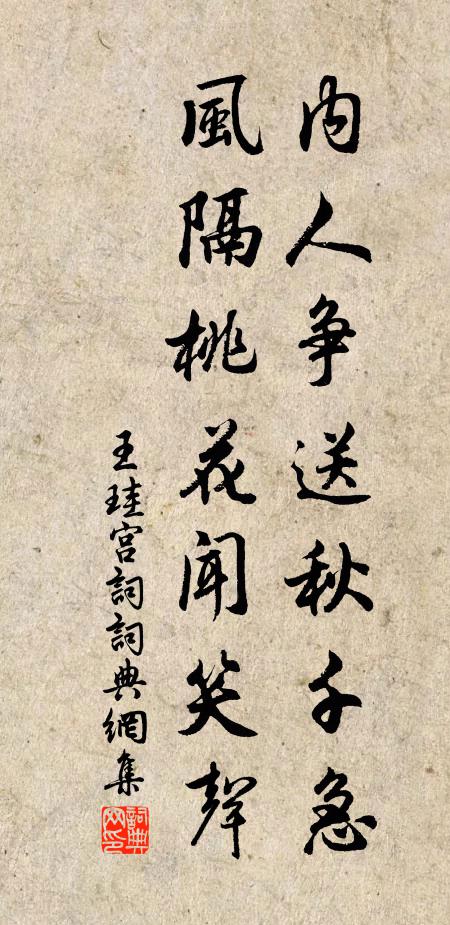 内人争送秋千急
風隔桃花闻笑聲
王珪宫詞詞典網集
詞典網印